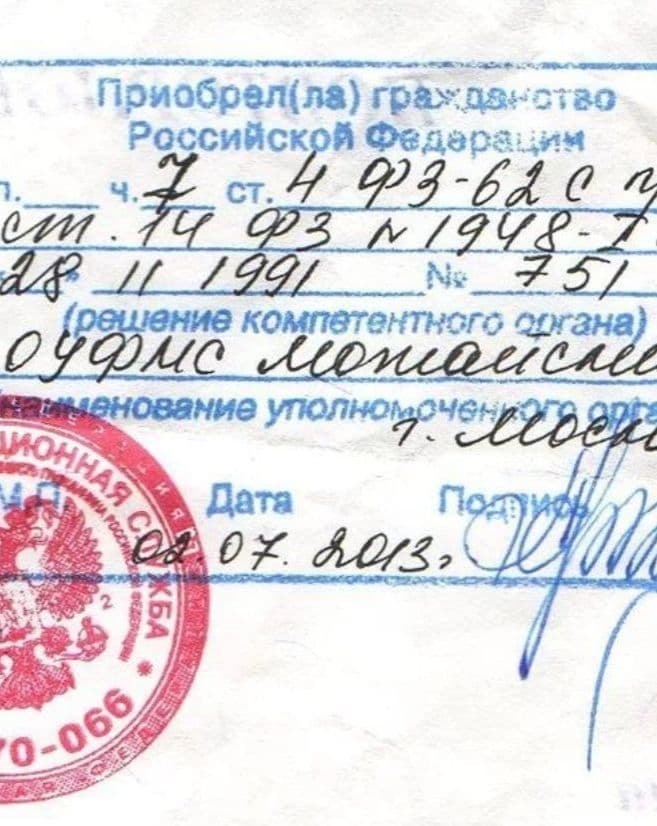 Приобрел(ла) гражданство
Российской Федерации
п. ч. 7 ст. 4 ФЗ-62 с у
ст. 14 ФЗ N 1948-1
28 11 1991 № 751
(решение компетентного органа)
ОУФМС Можайск
наименование уполномоченного орга
г. Моск
М.П. Дата Подпись
02.07.2013г
ЦИОННАЯ СЛУЖБА
70-066
2